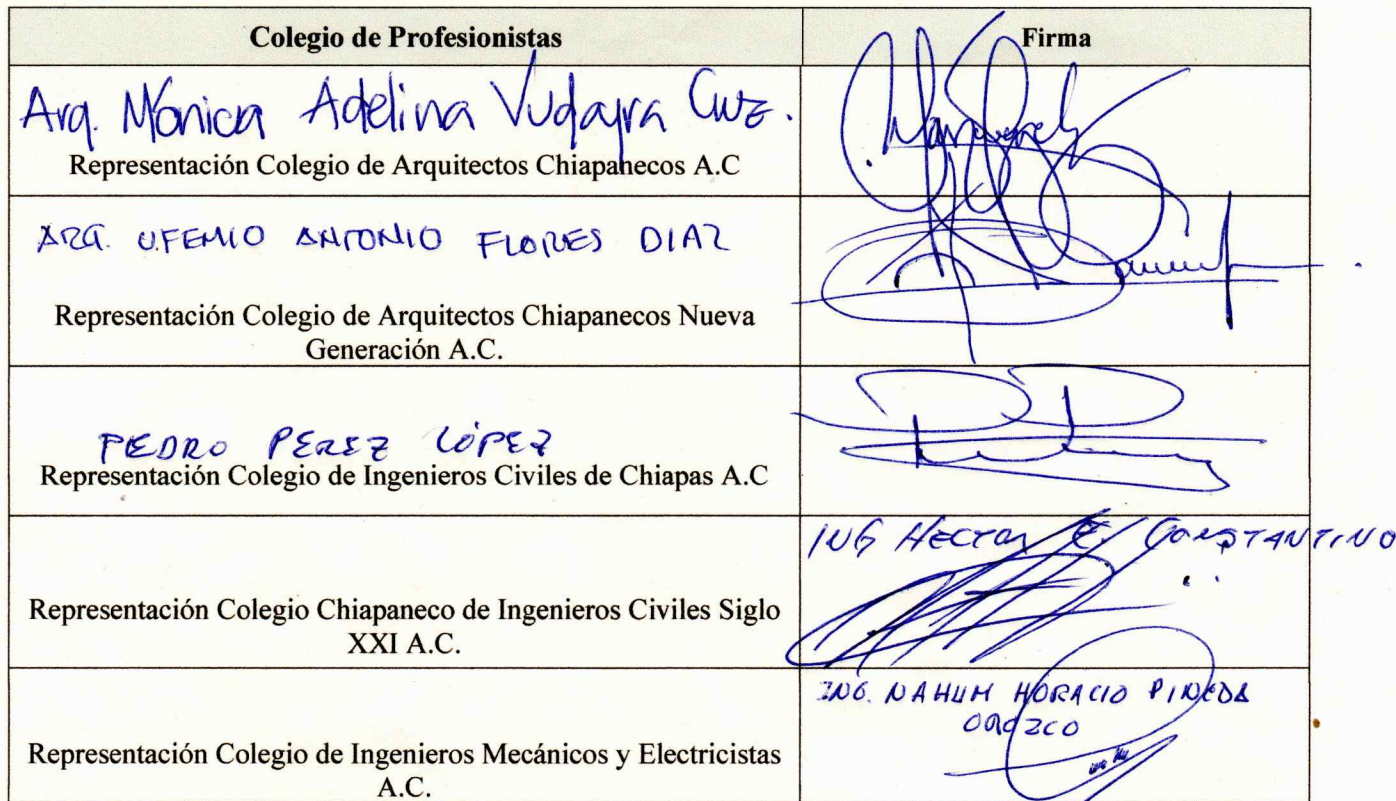 Colegio de Profesionistas
Firma
Arq. Mónica Adelina Vudayra Cruz.
Representación Colegio de Arquitectos Chiapanecos A.C
ARQ. UFEMIO ANTONIO FLORES DIAZ
Representación Colegio de Arquitectos Chiapanecos Nueva
Generación A.C.
PEDRO PEREZ LÓPEZ
Representación Colegio de Ingenieros Civiles de Chiapas A.C
ING HECTOR E. CONSTANTINO
Representación Colegio Chiapaneco de Ingenieros Civiles Siglo
XXI A.C.
ING. NAHUM HORACIO PINEDA
OROZCO
Representación Colegio de Ingenieros Mecánicos y Electricistas
A.C.